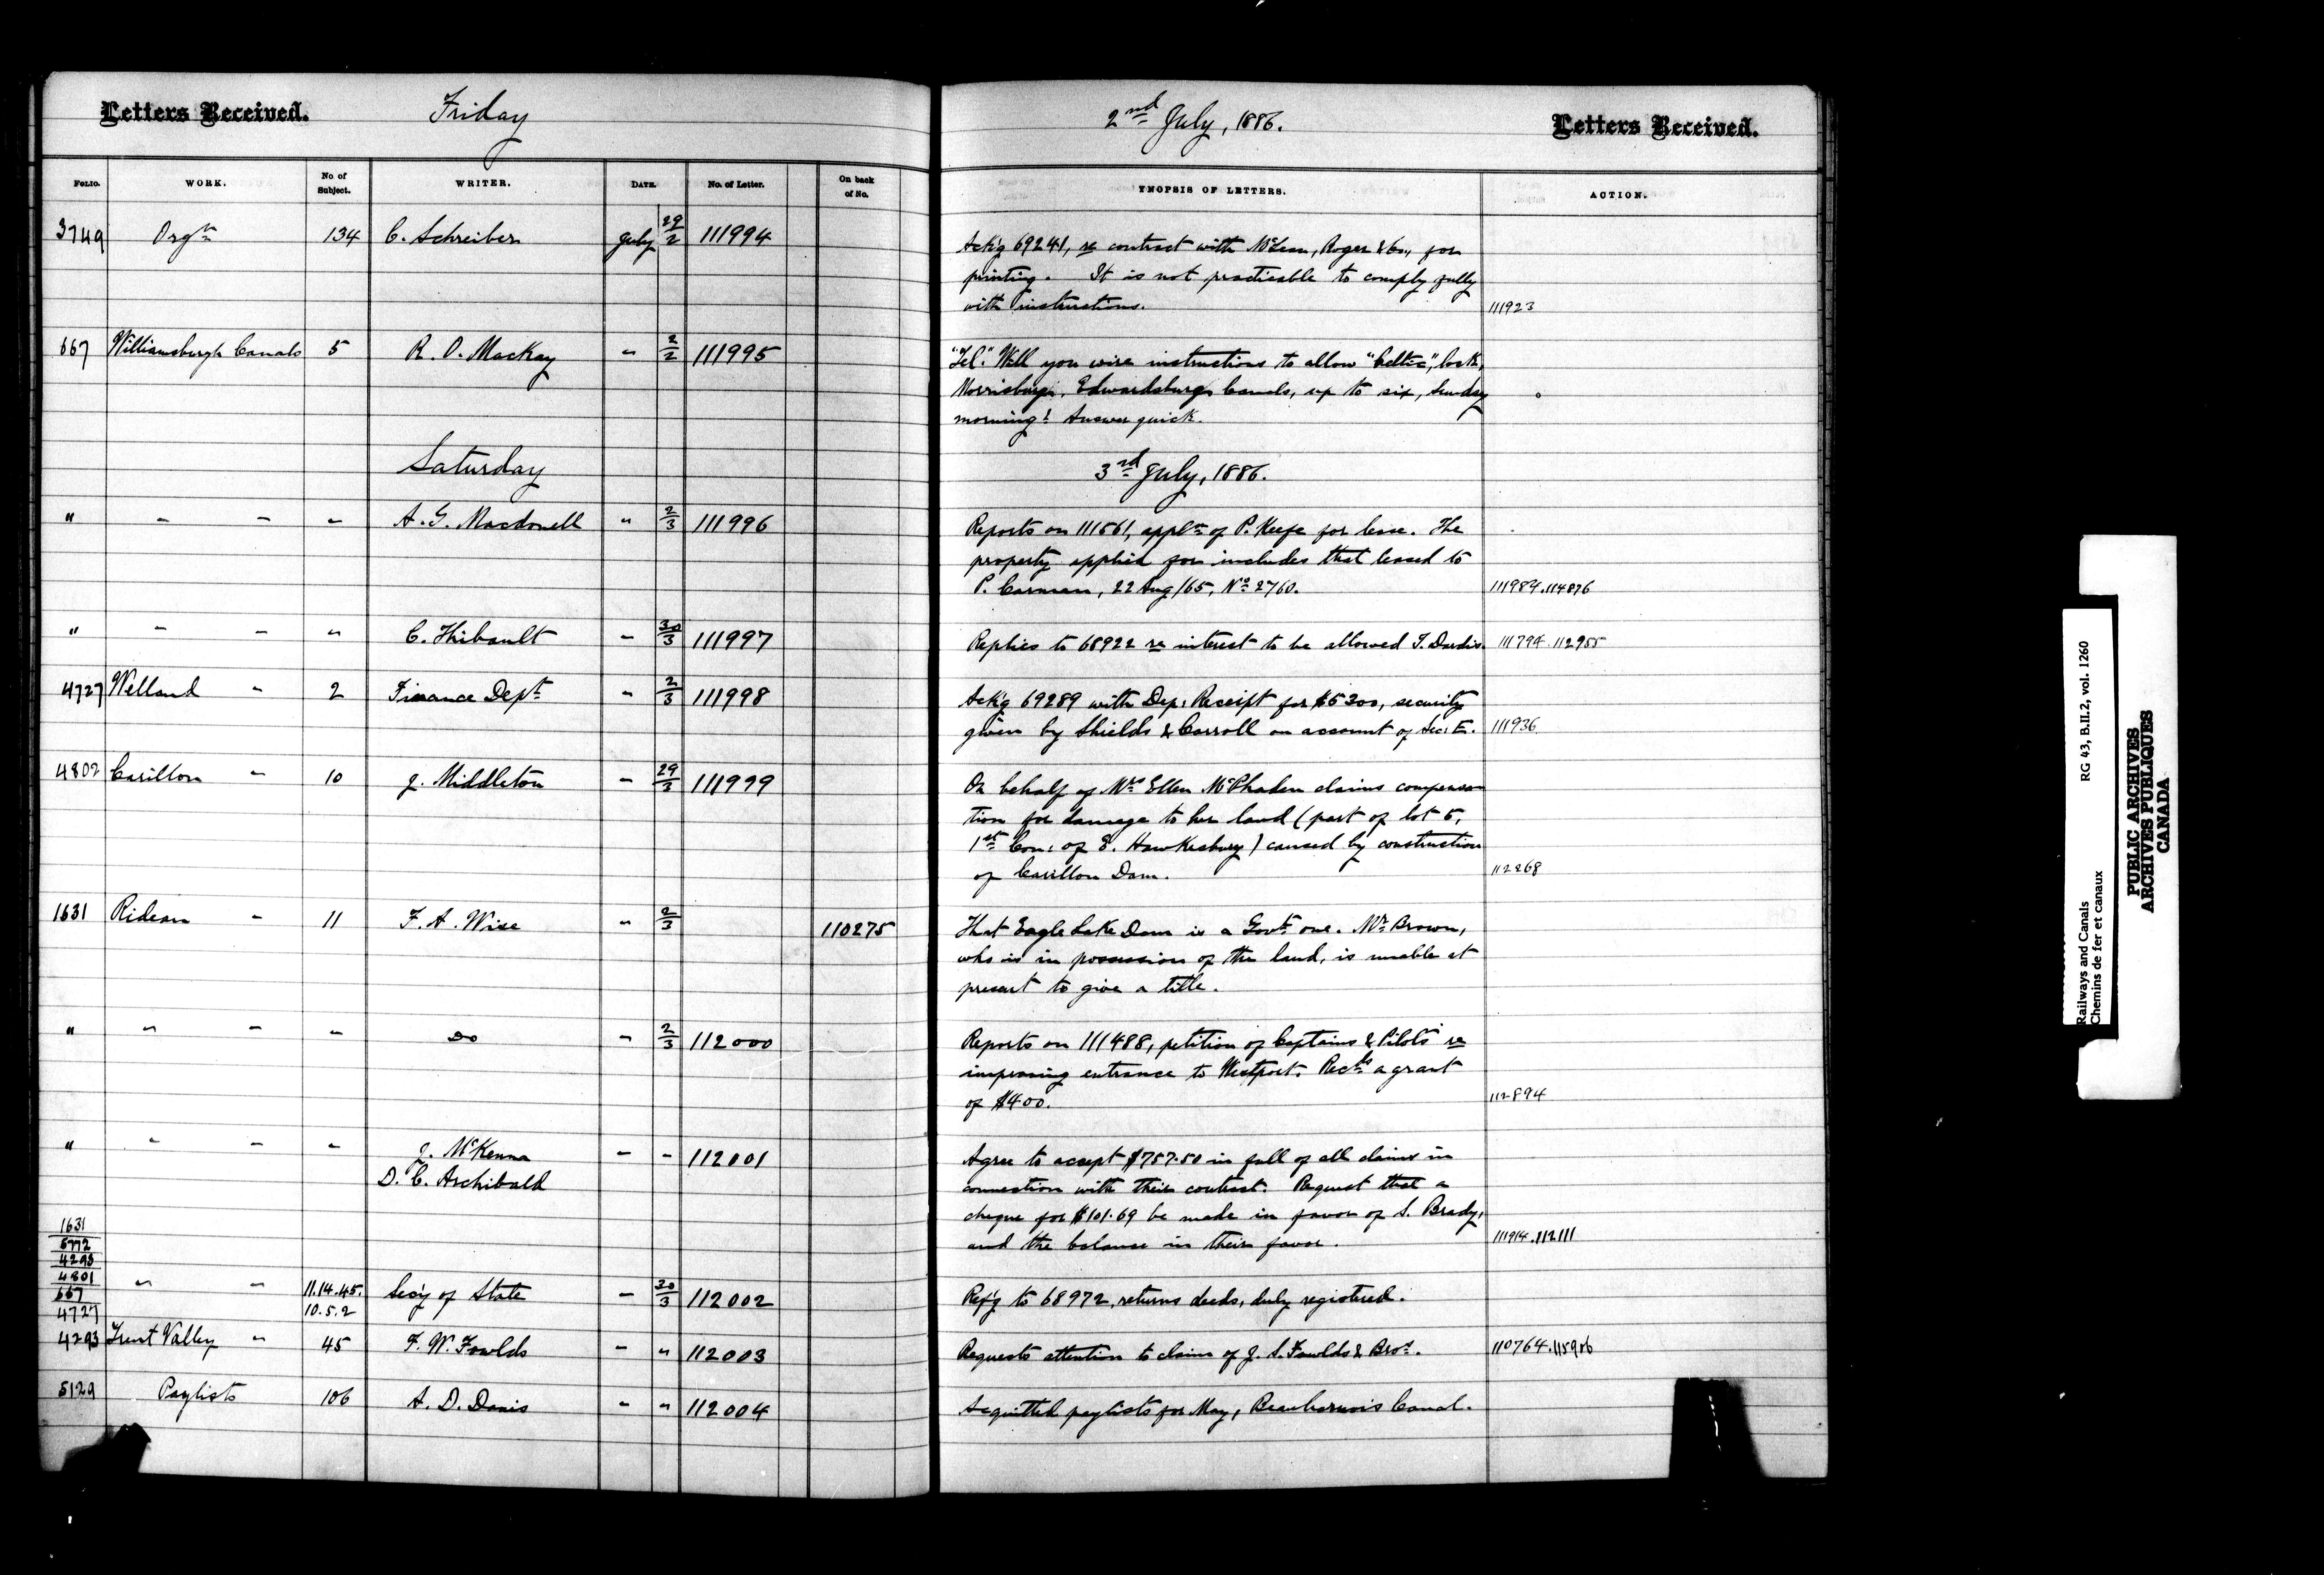 Letters Received.
Friday
2nd July, 1886.
Letters Received.
FOLIO.
WORK.
No of Subject.
WRITER.
DATE.
No. of Letter.
On back of No.
SYNOPSIS OF LETTERS.
ACTION.
3749 Orgn 134 C. Schreiber July 29/2 111994
Ack'g 69241, re contract with McLean, Roger & Co., for
printing. It is not practicable to comply fully
with instructions. 111923
667 Williamsburgh Canals 5 R. O. MacKay " 2/2 111995
"Tel." Will you wire instructions to allow "Celtic", lock,
Morrisburgh, Edwardsburgh Canals, up to six, Sunday
morning? Answer quick.
Saturday
3rd July, 1886.
" " " " A. G. Macdonell " 2/3 111996
Reports on 111561, appln of P. Keefe for lease. The
property applied for includes that leased to
P. Carman, 22 Aug/65, No 2760. 111989.114876
" " " " C. Thibault " 30/3 111997
Replies to 68922 re interest to be allowed T. Dardis. 111794.112955
4727 Welland " 2 Finance Dept " 2/3 111998
Ack'g 69289 with Dep: Receipt for $5300, security
given by Shields & Carroll on account of Sec: E. 111936
4802 Carillon " 10 J. Middleton " 29/3 111999
On behalf of Mrs Ellen McPhaden claims compensa
tion for damage to her land (part of lot 5,
1st Con: of E. Hawkesbury) caused by construction
of Carillon Dam. 112268
1631 Rideau " 11 F. A. Wise " 2/3 110275
That Eagle Lake Dam is a Govt one. Mr Brown,
who is in possession of the land, is unable at
present to give a title.
" " " " Do " 2/3 112000
Reports on 111488, petition of Captains & Pilots re
improving entrance to Westport. Recds a grant
of $400. 112894
" " " " J. McKenna " " 112001
D. C. Archibald
Agree to accept $757.50 in full of all claims in
connection with their contract. Request that a
cheque for $101.69 be made in favor of S. Brady,
and the balance in their favor. 111914.112111
1631
5772
4293
4801
667
4727
" " 11.14.45. Sec'y of State " 30/3 112002
10.5.2
Ref'g to 68972, returns deeds, duly registered.
4293 Trent Valley " 45 F. W. Fowlds " " 112003
Requests attention to claim of J. S. Fowlds & Bros. 110764.115906
5129 Paylists 106 A. D. Davis " " 112004
Acquitted paylists for May, Beauharnois Canal.
Railways and Canals RG 43, B.II.2, vol. 1260
Chemins de fer et canaux
PUBLIC ARCHIVES
ARCHIVES PUBLIQUES
CANADA